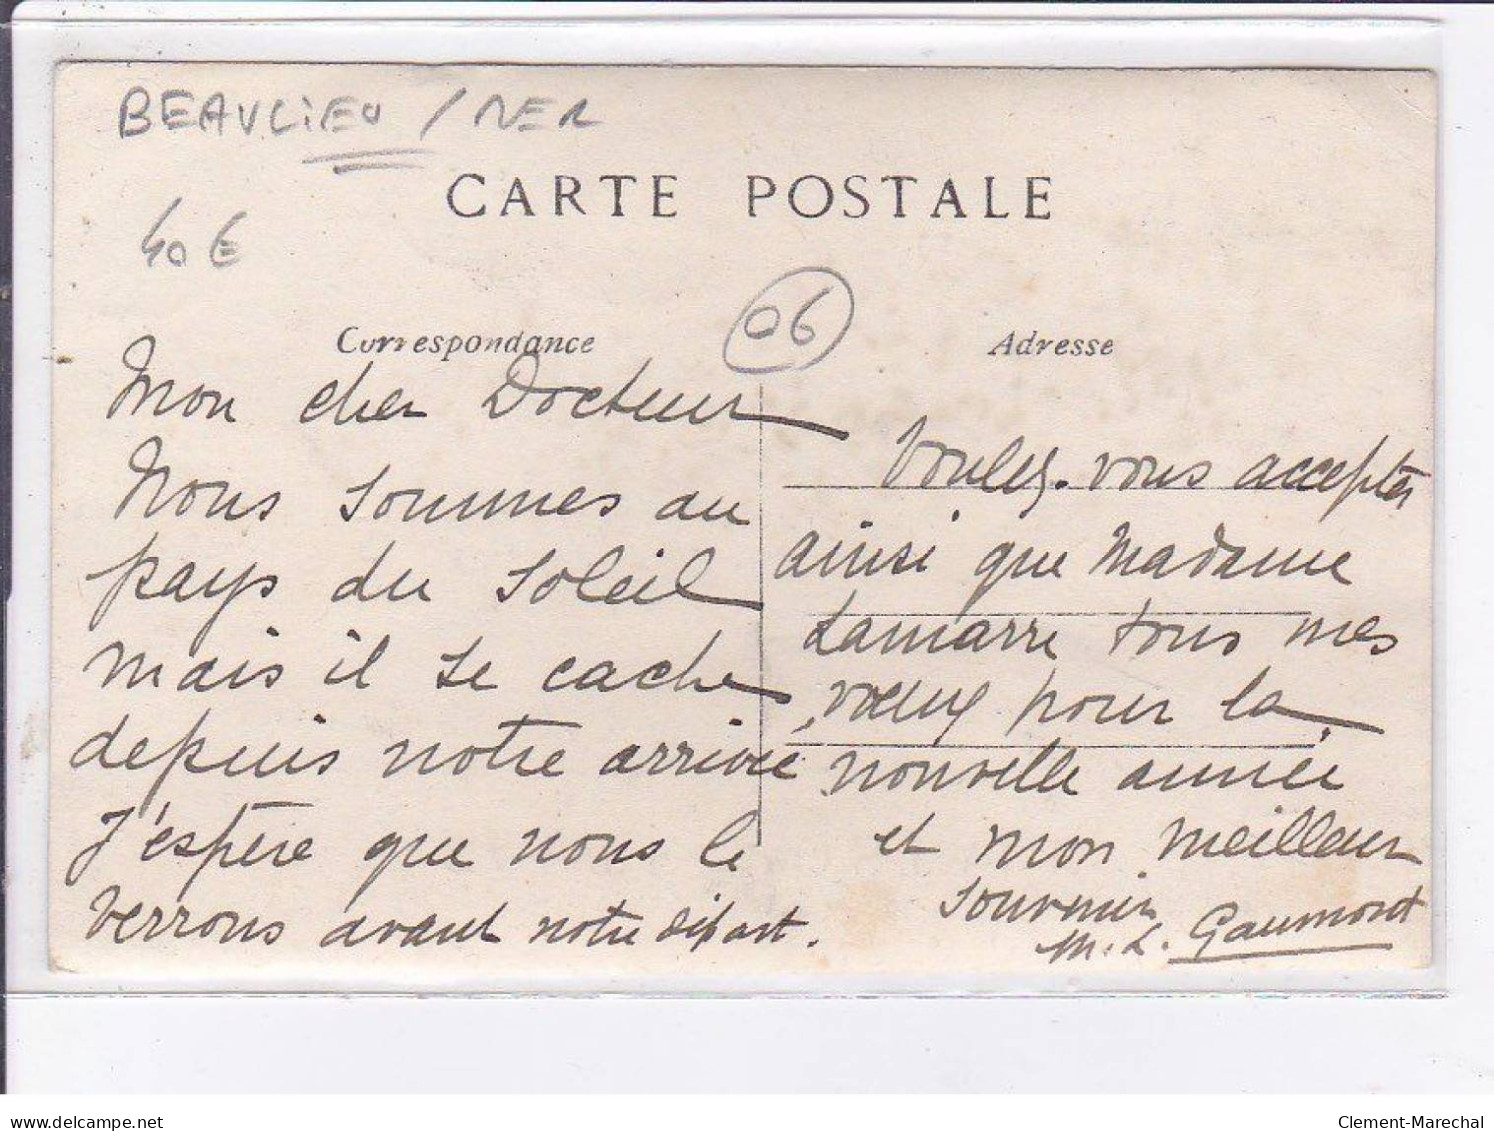 BEAULIEU / MER
CARTE POSTALE
40 €
06
Correspondance
Adresse
Mon cher Docteur
Nous sommes au
pays du soleil
mais il se cache
depuis notre arrivée
J'espère que nous le
verrons avant notre départ.
Voulez-vous accepter
ainsi que Madame
Lamarre tous mes
vœux pour la
nouvelle année
et mon meilleur
souvenir
M. L. Gaumont
delcampe.net
Clement-Marechal